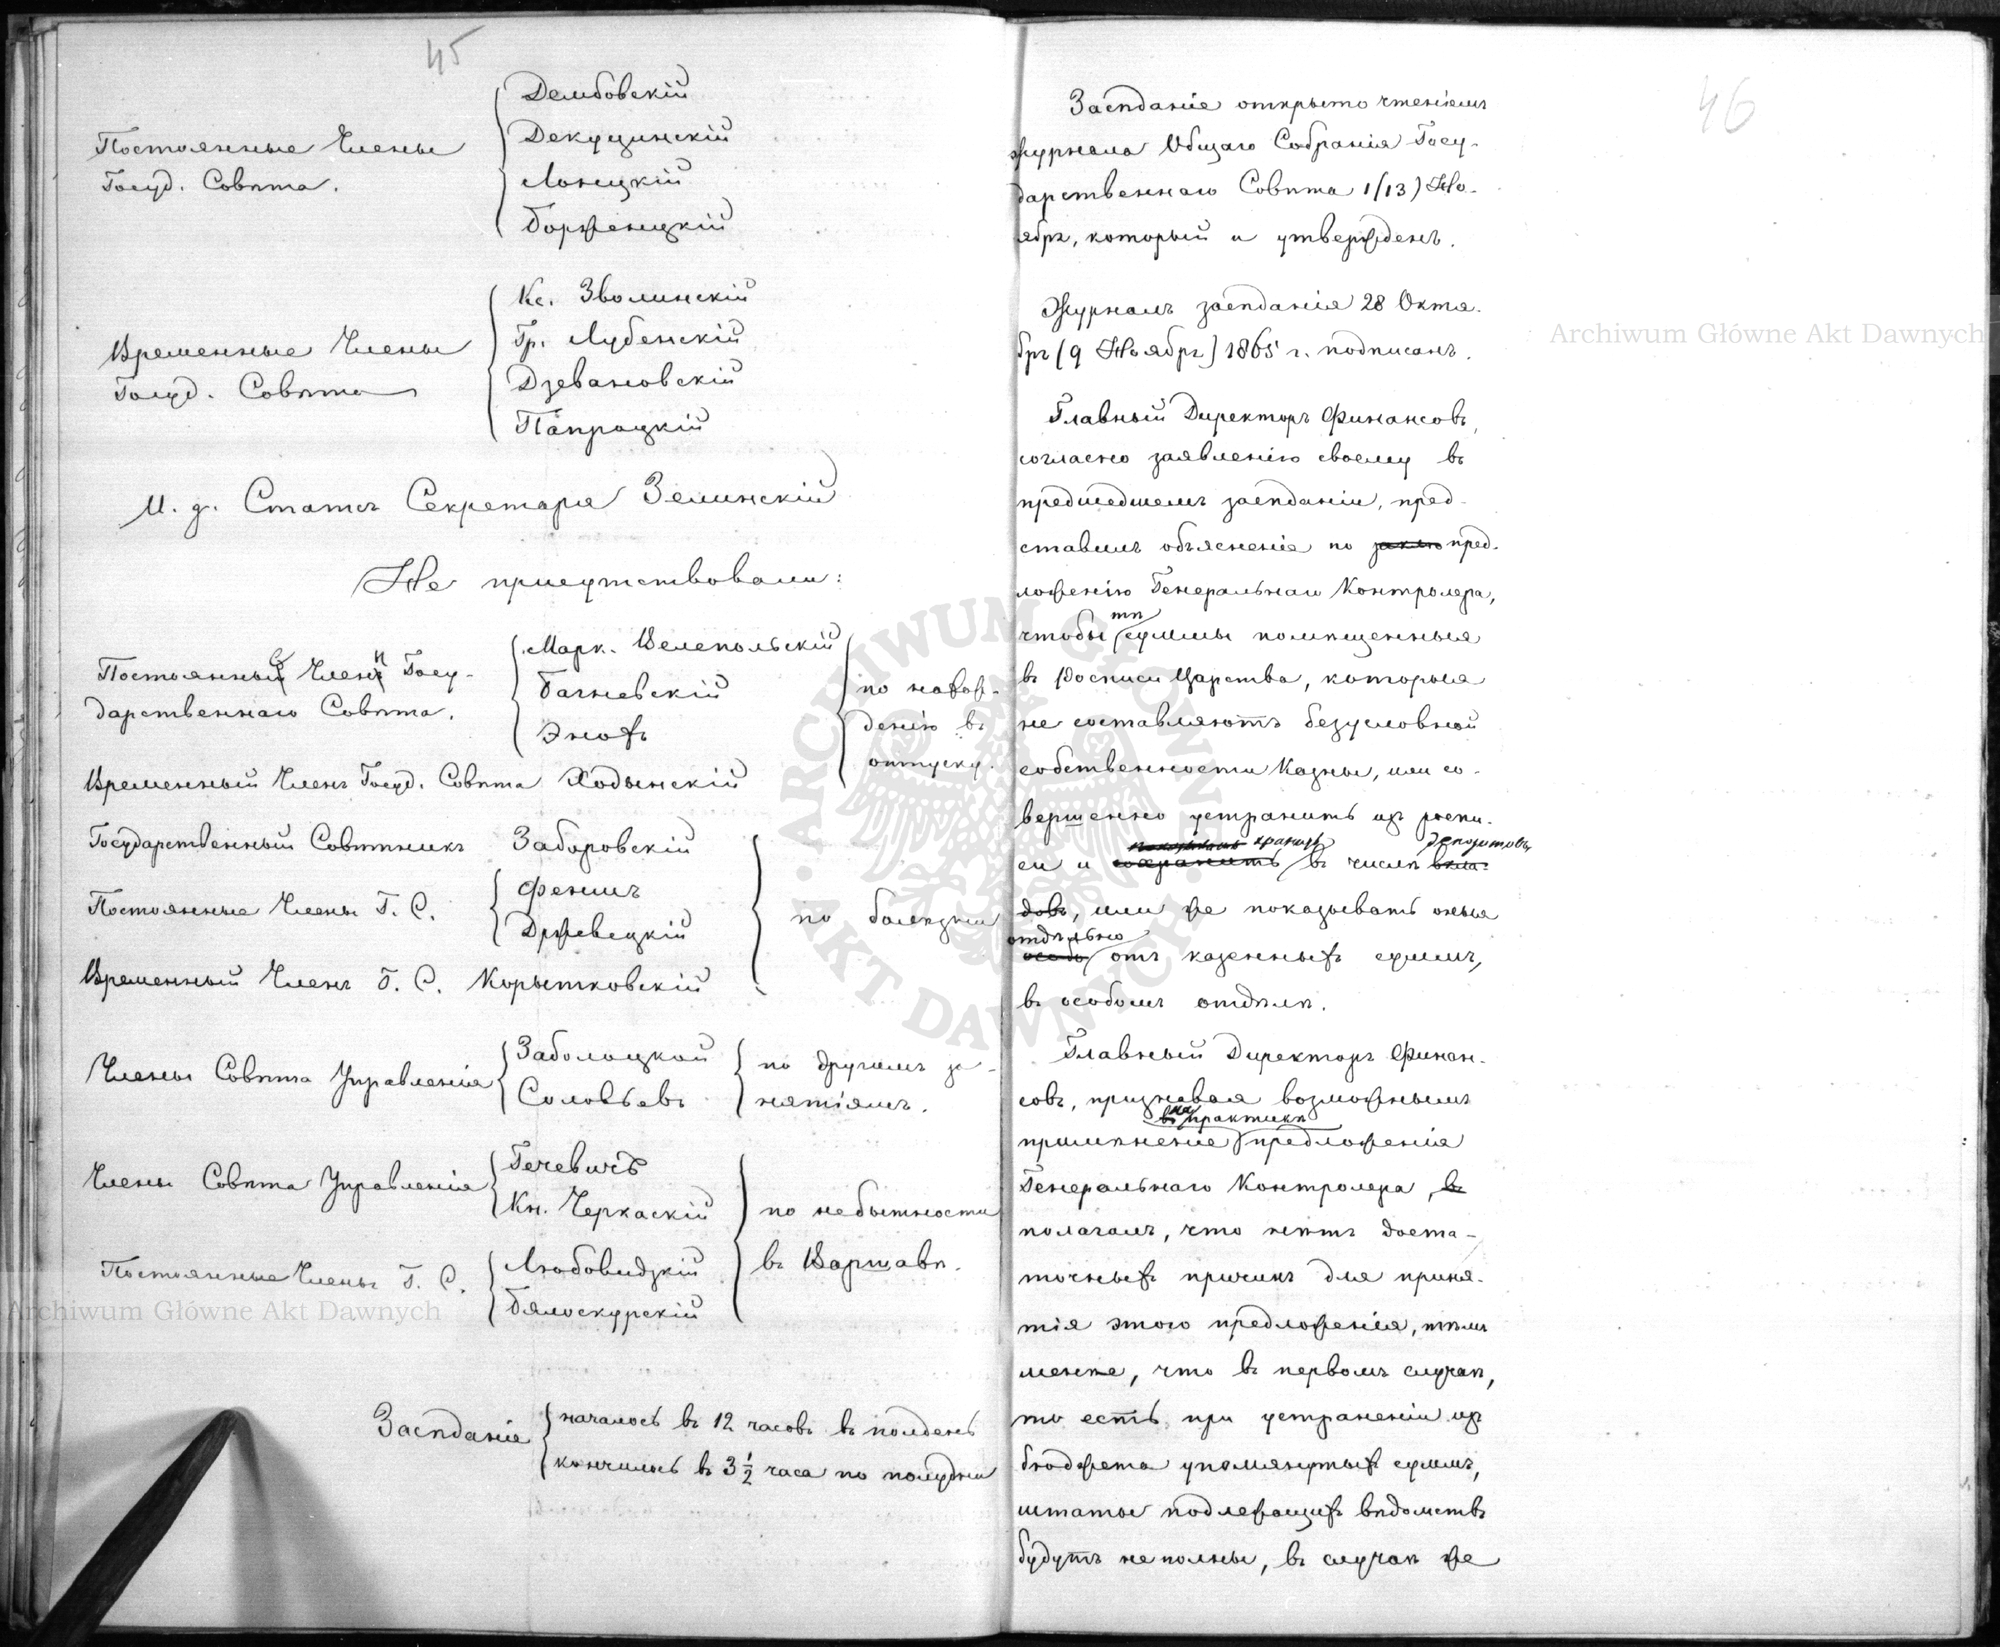 45
Постоянные Члены
Госуд. Совѣта.
Дембовскій
Декуцинскій
Лонцкій
Борженцкій
Временные Члены
Госуд. Совѣта
Кс. Зволинскій
Гр. Лубенскій
Дзевановскій
Папроцкій
И. д. Статсъ Секретаря Зелинскій
Не присутствовали:
Постоянные Члены Госу-
дарственнаго Совѣта.
Марк. Велепольскій
Багневскій
Энохъ
Временный Членъ Госуд. Совѣта Ходынскій
по нахож-
денію въ
отпуску.
Государственный Совѣтникъ Заборовскій
Постоянные Члены Г. С.
Феншъ
Држевецкій
Временный Членъ Г. С. Корытковскій
по болѣзни
Члены Совѣта Управленія
Заболоцкой
Соловьевъ
по другимъ за-
нятіямъ.
Члены Совѣта Управленія
Гечевичъ
Кн. Черкаскій
Постоянные Члены Г. С.
Любовидзкій
Бялоскурскій
по небытности
въ Варшавѣ.
Засѣданіе
началось въ 12 часовъ въ полдень
кончилось въ 3 1/2 часа по полудни
46
Засѣданіе открыто чтеніемъ
журнала Общаго Собранія Госу-
дарственнаго Совѣта 1/13) Но-
ября, который и утвержденъ.
Журналъ засѣданія 28 Октя-
бря (9 Ноября) 1865 г. подписанъ.
Главный Директоръ Финансовъ,
согласно заявленію своему въ
предшедшемъ засѣданіи, пред-
ставилъ объясненіе по заклю пред-
ложенію Генеральнаго Контролера,
чтобы тѣ суммы помѣщенныя
въ Росписи Царства, которыя
не составляютъ безусловной
собственности Казны, или со-
вершенно устранить изъ роспи-
си и сохранить хранить въ числѣ вкла-
довъ депозитовъ, или же показывать оныя
особо отдѣльно отъ казенныхъ суммъ,
въ особомъ отдѣлѣ.
Главный Директоръ Финан-
совъ, признавая возможнымъ
примѣненіе на практикѣ предложенія
Генеральнаго Контролера, въ
полагалъ, что нѣтъ доста-
точныхъ причинъ для приня-
тія этого предложенія, тѣмъ
менѣе, что въ первомъ случаѣ,
то есть при устраненіи изъ
бюджета упомянутыхъ суммъ,
штаты подлежащихъ вѣдомствъ
будутъ неполны, въ случаѣ же
Archiwum Główne Akt Dawnych
Archiwum Główne Akt Dawnych
ARCHIWUM GŁÓWNE AKT DAWNYCH